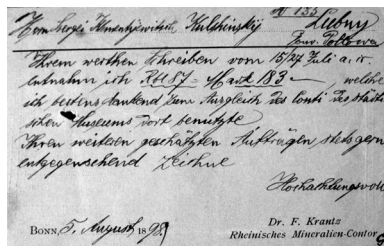 № 135
Herrn Sergei Klmentjewitsch Kulshinsky Lubny
Gouv. Poltawa
Ihrem werthen Schreiben vom 15/27 Juli a. c.
entnahm ich Rbl 87 - Mark 183 -, welche
ich bestens dankend zum Ausgleich des Conti des städti
schen Museums dort benutzte
Ihren weiteren geschätzten Aufträgen stets gern
entgegensehend zeichne
Hochachtungsvoll
BONN, 5. August 1898
Dr. F. Krantz
Rheinisches Mineralien-Contor